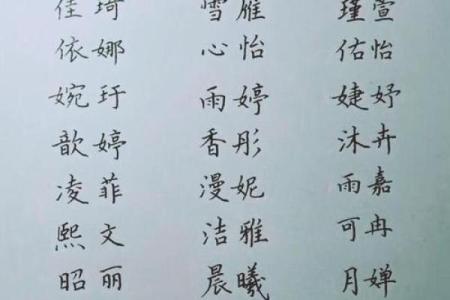 佳琦 雪雁 瑾萱
依娜 心怡 佑怡
婉玗 雨婷 婕妤
歆婷 香彤 沐卉
凌菲 漫妮 雨嘉
熙文 洁雅 可冉
昭丽 晨曦 月婵